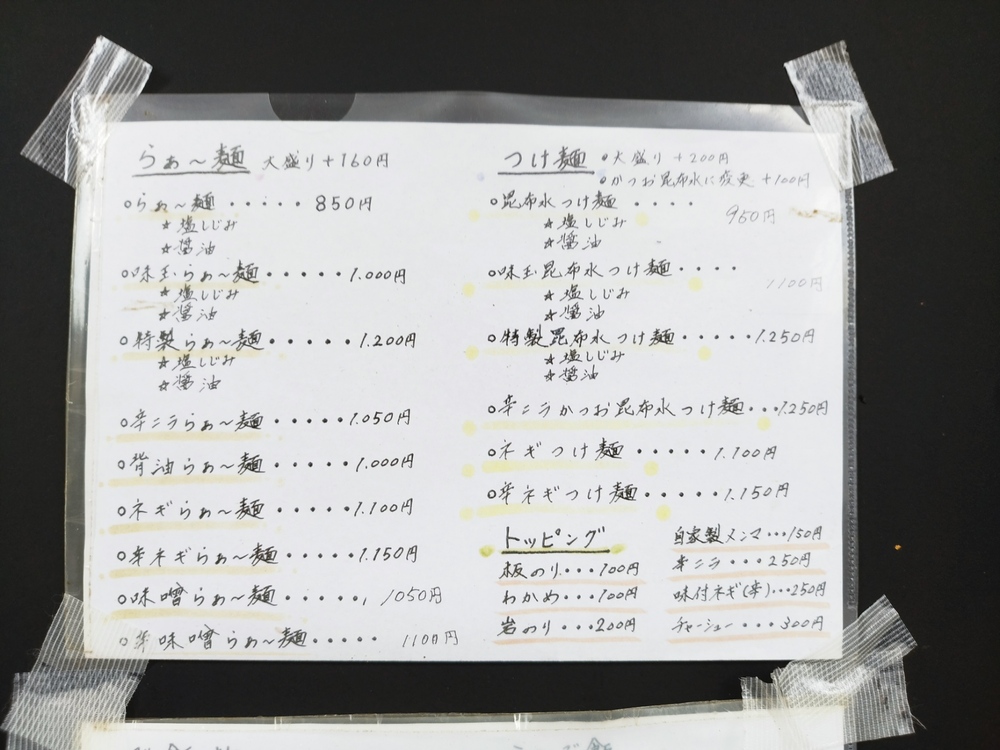 らぁ〜麺 大盛り+160円
○らぁ〜麺・・・・・850円
☆塩しじみ
☆醤油
○味玉らぁ〜麺・・・・・1.000円
☆塩しじみ
☆醤油
○特製らぁ〜麺・・・・・1.200円
☆塩しじみ
☆醤油
○辛ニラらぁ〜麺・・・・・1.050円
○背油らぁ〜麺・・・・・1.000円
○ネギらぁ〜麺・・・・・1.100円
○辛ネギらぁ〜麺・・・・・1.150円
○味噌らぁ〜麺・・・・・1050円
○辛味噌らぁ〜麺・・・・・1100円
つけ麺 ○大盛り+200円
○かつお昆布水に変更+100円
○昆布水つけ麺・・・・950円
☆塩しじみ
☆醤油
○味玉昆布水つけ麺・・・・1100円
☆塩しじみ
☆醤油
○特製昆布水つけ麺・・・・・1.250円
☆塩しじみ
☆醤油
○辛ニラかつお昆布水つけ麺・・・1.250円
○ネギつけ麺・・・・・1.100円
○辛ネギつけ麺・・・・・1.150円
トッピング
板のり・・・100円
わかめ・・・100円
岩のり・・・200円
自家製メンマ・・・150円
辛ニラ・・・250円
味付ネギ(辛)・・・250円
チャーシュー・・・300円